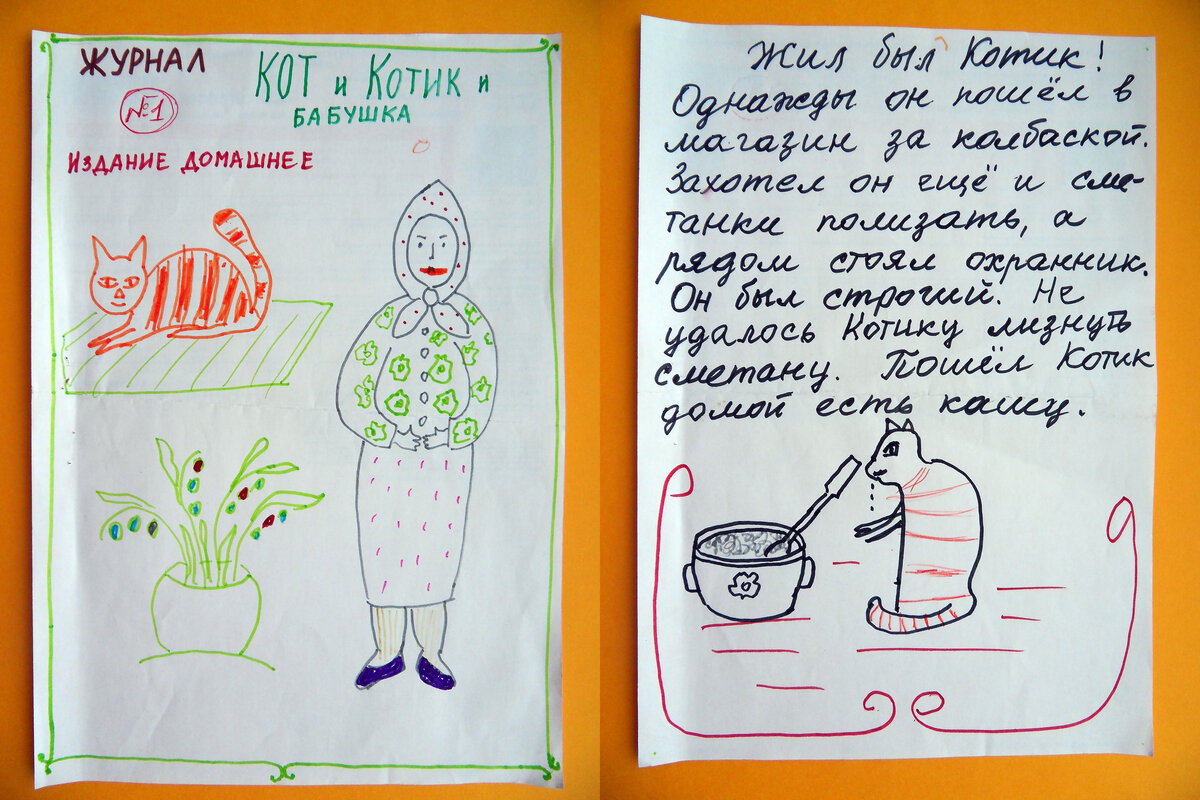 ЖУРНАЛ
№1
КОТ и КОТИК и
БАБУШКА
ИЗДАНИЕ ДОМАШНЕЕ
Жил был Котик!
Однажды он пошёл в
магазин за колбаской.
Захотел он ещё и сме-
танки полизать, а
рядом стоял охранник.
Он был строгий. Не
удалось Котику лизнуть
сметану. Пошёл Котик
домой есть кашу.